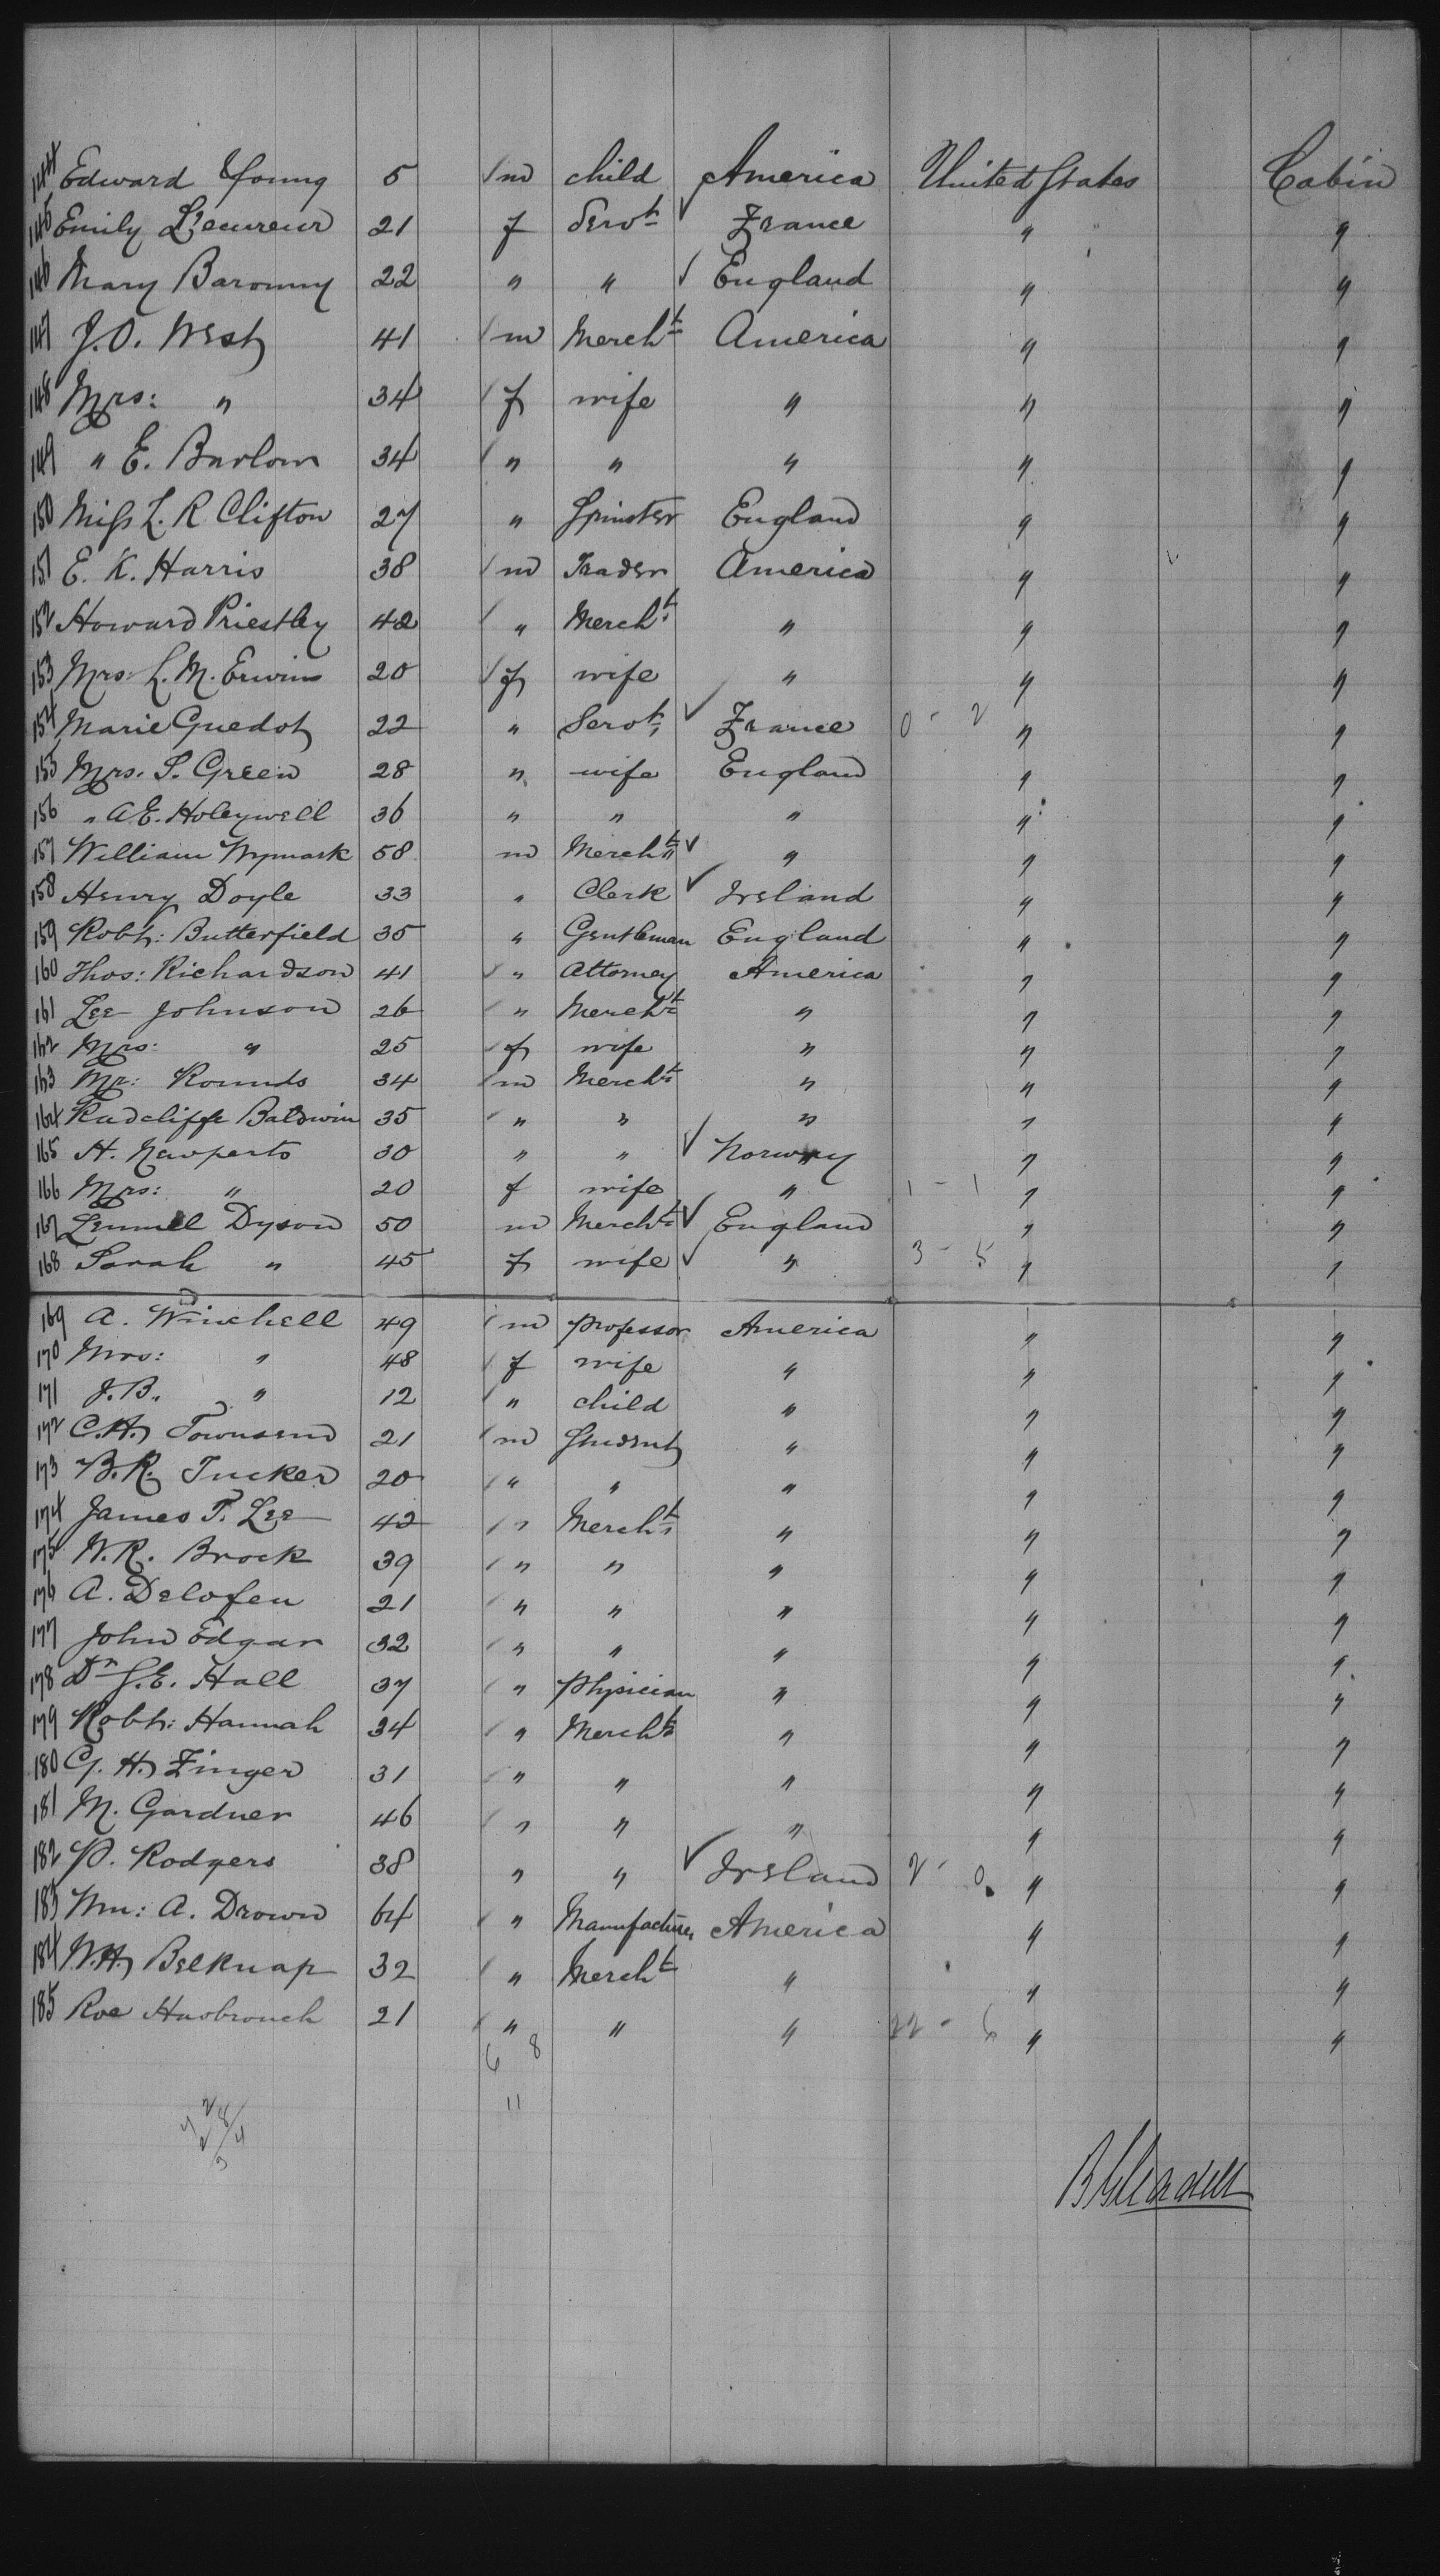 144 Edward Young 5 m child America United States Cabin
145 Emily L'ecureur 21 f Servt ✓ France " "
146 Mary Baronny 22 " " ✓ England " "
147 J.O. West 41 m Mercht America " "
148 Mrs: " 34 f wife " " "
149 " E. Barlow 34 " " " " "
150 Miss L. R Clifton 27 " Spinster England " "
151 E. K. Harris 38 m Trader America " "
152 Howard Priestley 42 " Mercht " " "
153 Mrs: L. M. Erwin 20 f wife " " "
154 Marie Guedot 22 " Servt ✓ France 0 - 2 " "
155 Mrs. S. Green 28 " wife England " "
156 " A.E. Holeywell 36 " " " " "
157 William Wymark 58 m Mercht ✓ " " "
158 Henry Doyle 33 " Clerk ✓ Ireland " "
159 Robt: Butterfield 35 " Gentleman England " "
160 Thos: Richardson 41 " Attorney America " "
161 Lee Johnson 26 " Mercht " " "
162 Mrs: " 25 f wife " " "
163 Mr: Rounds 34 m Mercht " " "
164 Radcliffe Baldwin 35 " " " " "
165 H. Newperts 30 " " ✓ Norway " "
166 Mrs: " 20 f wife " 1 - 1 " "
167 Lemuel Dyson 50 m Mercht ✓ England " "
168 Sarah " 45 f wife ✓ " 3 - 5 " "
169 A. Winchell 49 m professor America " "
170 Mrs: " 48 f wife " " "
171 J.B. " 12 " child " " "
172 C.H. Townsend 21 m Student " " "
173 B.R. Tucker 20 " " " " "
174 James T. Lee 42 " Mercht " " "
175 W.R. Brock 39 " " " " "
176 A. Delofeu 21 " " " " "
177 John Edgar 32 " " " " "
178 Dr S.E. Hall 37 " Physician " " "
179 Robt: Hannah 34 " Mercht " " "
180 G. H. Finger 31 " " " " "
181 M. Gardner 46 " " " " "
182 P. Rodgers 38 " " ✓ Ireland 2 - 0 " "
183 Wm: A. Drown 64 " Manufacturer America " "
184 W.H. Belknap 32 " Mercht " " "
185 Roe Hasbrouch 21 " " " 22 - 6 " "
6 8
11